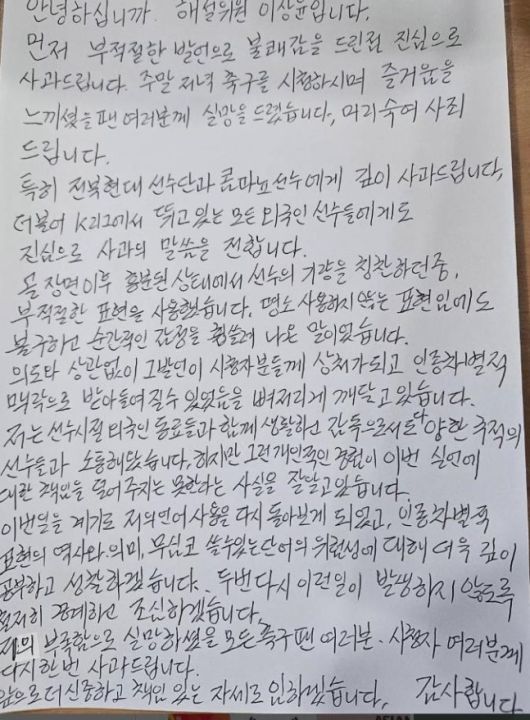 안녕하십니까. 해설위원 이상윤입니다.
먼저 부적절한 발언으로 불쾌감을 드린점 진심으로
사과드립니다. 주말 저녁 축구를 시청하시며 즐거움을
느끼셨을 팬 여러분께 실망을 드렸습니다, 머리숙여 사죄
드립니다.
특히 전북현대 선수단과 콤파뇨선수에게 깊이 사과드립니다,
더불어 K리그에서 뛰고있는 모든 외국인 선수들에게도
진심으로 사과의 말씀을 전합니다.
골 장면이후 흥분된 상태에서 선수의 기량을 칭찬하던중,
부적절한 표현을 사용했습니다. 평소 사용하지 않는 표현임에도
불구하고 순간적인 감정을 휩쓸려 나온 말이었습니다.
의도와 상관없이 그발언이 시청자분들께 상처가되고 인종차별적
맥락으로 받아들여질수 있었음을 뼈저리게 깨닫고있습니다.
저는 선수시절 외국인 동료들과 함께 생활하고 감독으로서도 다양한 국적의
선수들과 소통해왔습니다, 하지만 그런개인적인 경험이 이번 실언에
대한 책임을 덜어주지는 못한다는 사실을 잘알고있습니다.
이번일을 계기로 저의언어사용을 다시 돌아보게 되었고, 인종차별적
표현의 역사와 의미, 무심코 쓸수있는단어의 위험성에 대해 더욱 깊이
공부하고 성찰하겠습니다. 두번다시 이런일이 발생하지 않도록
철저히 경계하고 조심하겠습니다.
저의 부족함으로 실망하셨을 모든축구팬 여러분. 시청자 여러분께
다시한번 사과드립니다.
앞으로더신중하고 책임 있는 자세로 임하겠습니다, 감사합니다